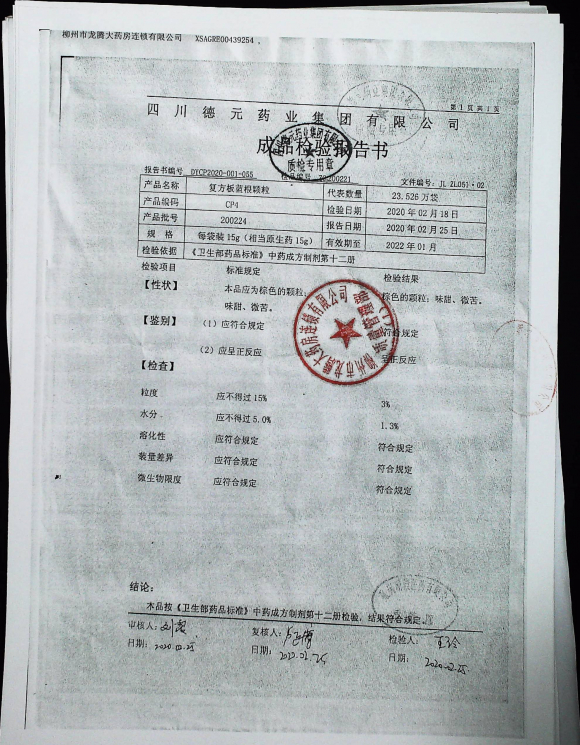 柳州市龙腾大药房连锁有限公司 XSAGRE00439254
第 1 页 共 1 页
四川德元药业集团有限公司
成品检验报告书
质检专用章
报告书编号 DYCP2020-001-055 文件编号: JL ZL051·02
产品名称 复方板蓝根颗粒 代表数量 23.526 万袋
产品编码 CP4 检验日期 2020 年 02 月 18 日
产品批号 200224 报告日期 2020 年 02 月 25 日
规 格 每袋装 15g（相当原生药 15g） 有效期至 2022 年 01 月
检验依据 《卫生部药品标准》中药成方制剂第十二册
检验项目 标准规定 检验结果
【性状】 本品应为棕色的颗粒； 棕色的颗粒；味甜、微苦。
味甜、微苦。
【鉴别】 （1）应符合规定 符合规定
（2）应呈正反应 呈正反应
【检查】
粒度 应不得过 15% 3%
水分 应不得过 5.0% 1.3%
溶化性 应符合规定 符合规定
装量差异 应符合规定 符合规定
微生物限度 应符合规定 符合规定
柳州市龙腾大药房连锁有限公司
结论：
本品按《卫生部药品标准》中药成方制剂第十二册检验，结果符合规定。
审核人： 复核人： 检验人：
日期：2020.02.25 日期：2020.02.25 日期：2020.02.25